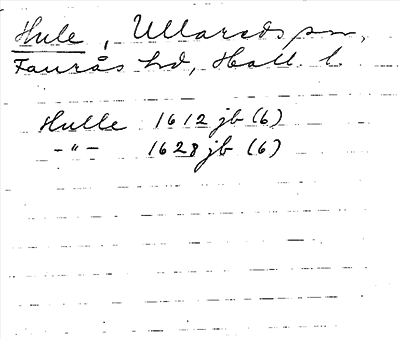 Hule, Ullareds sn,
Faurås hd, Hall. l.
Hulle 1612 jb (6)
-"- 1628 jb (6)